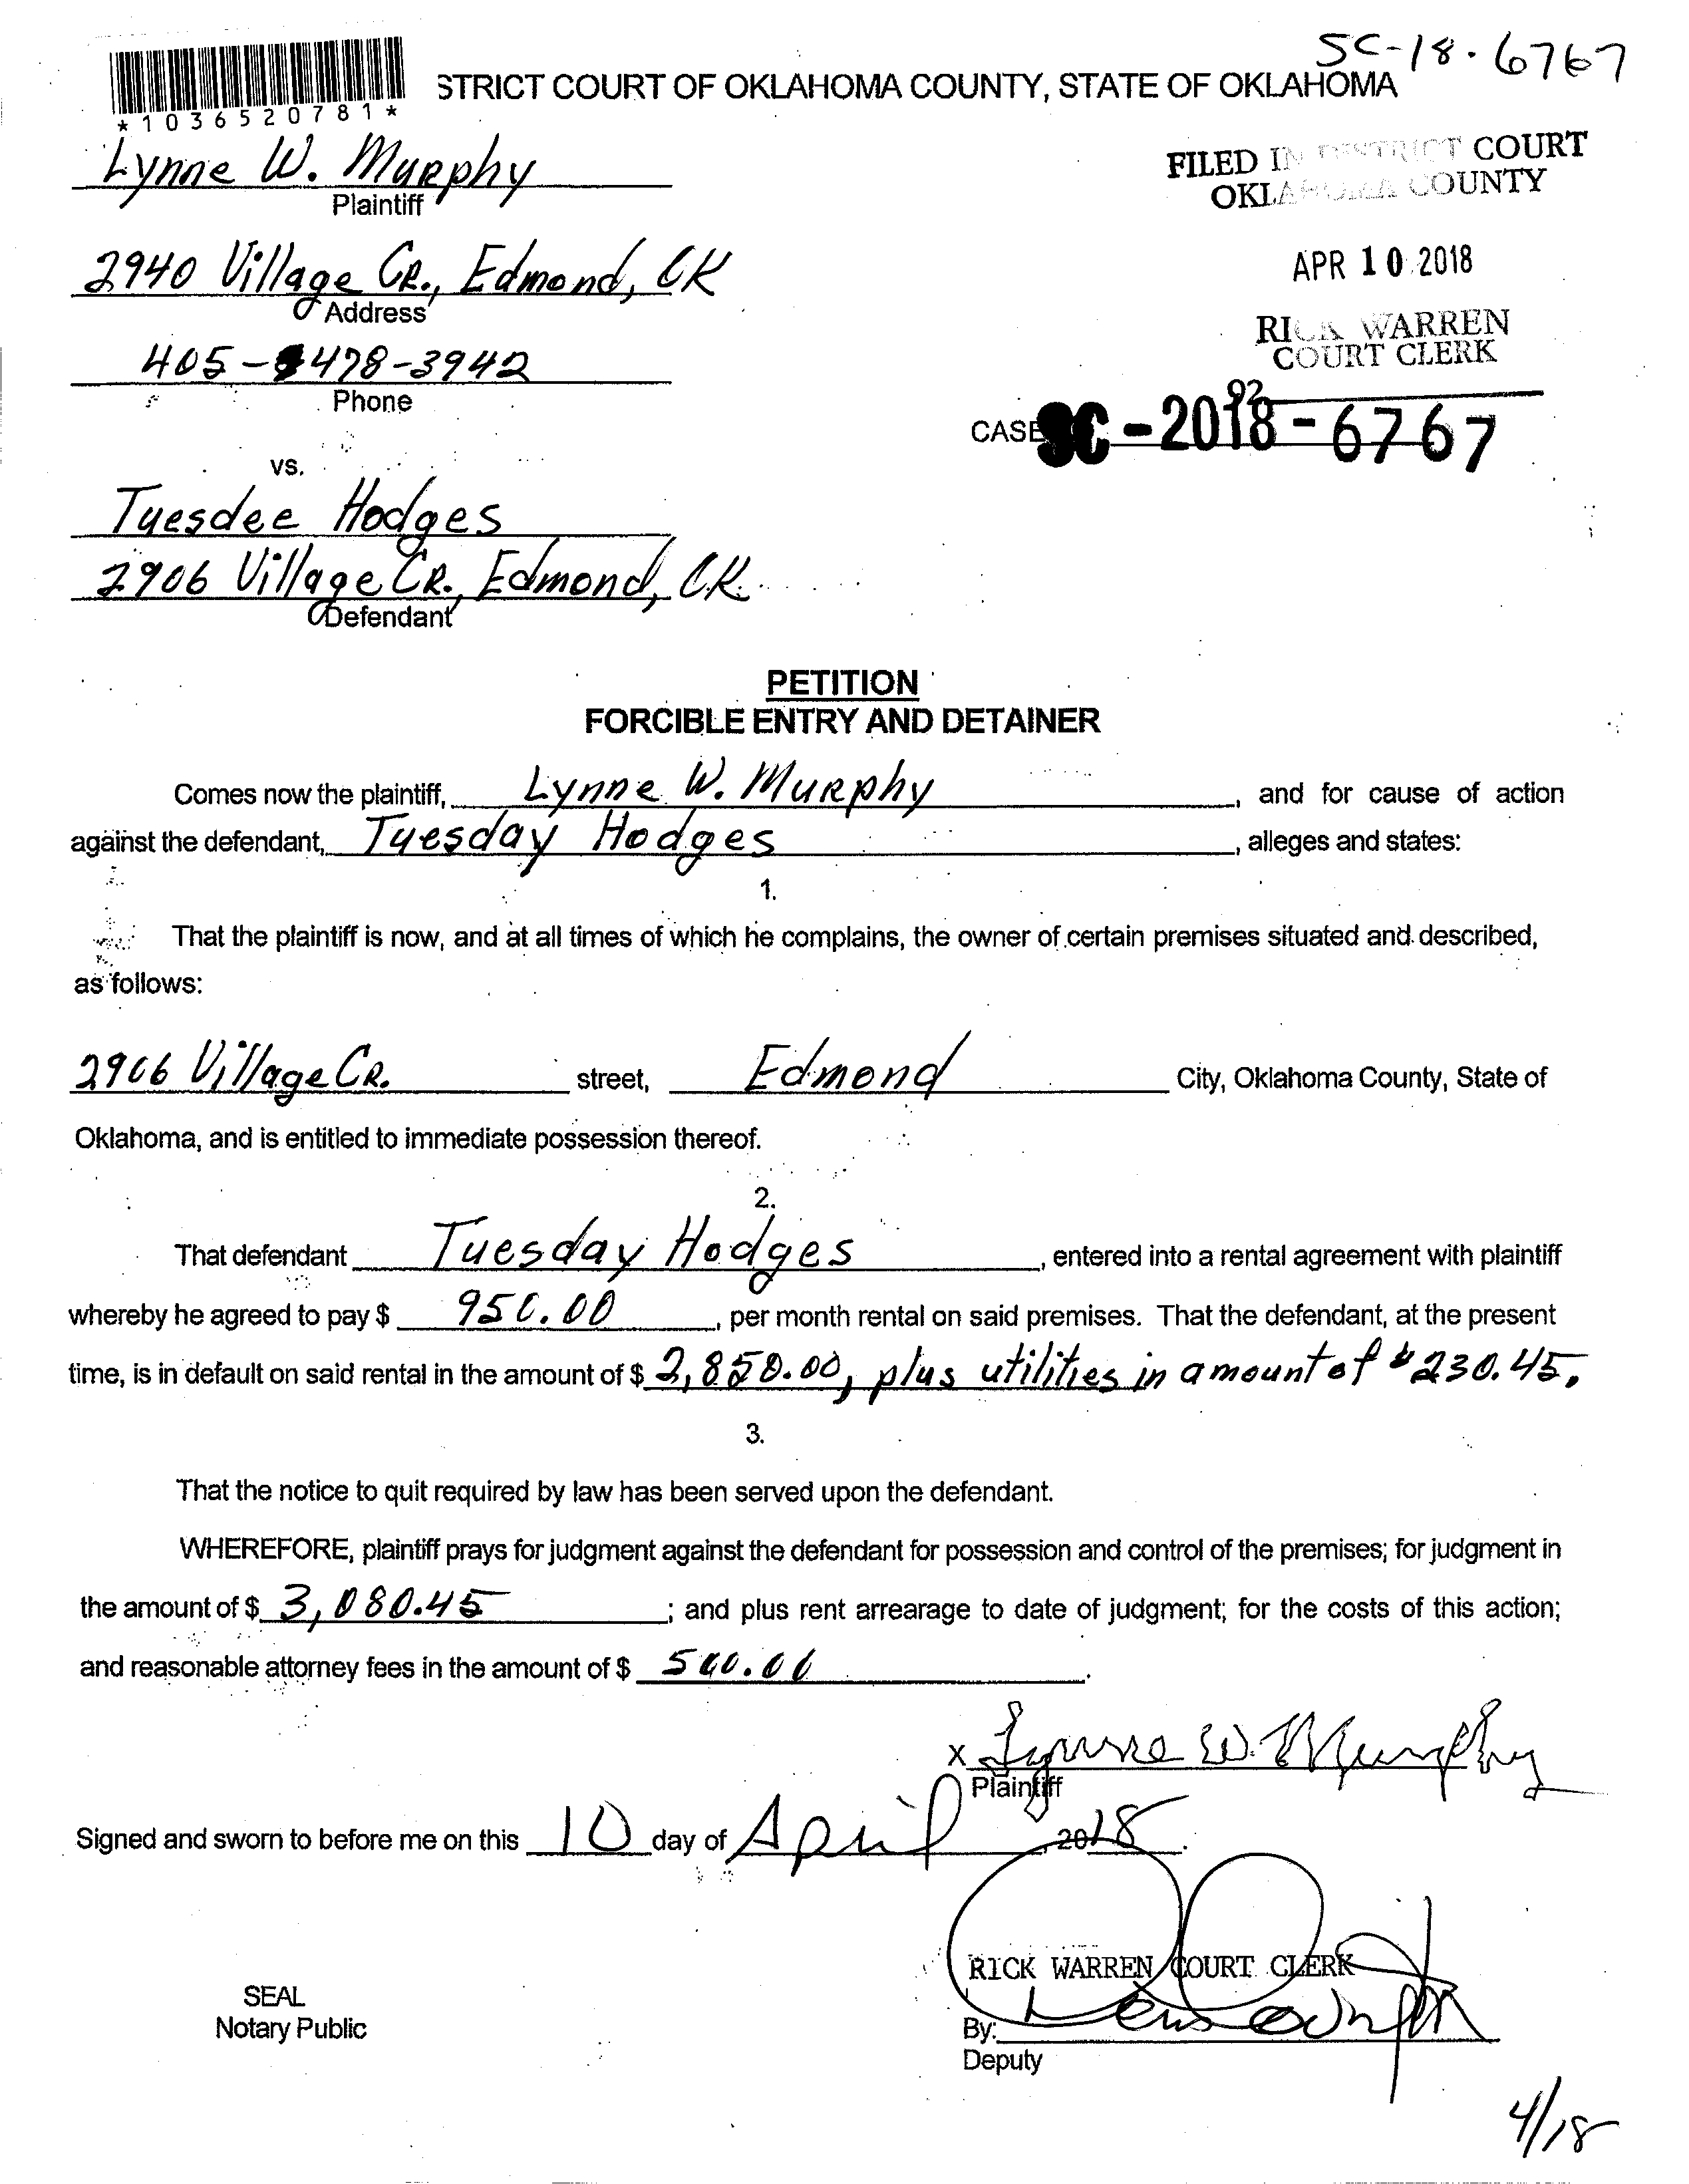 SC-18-6767
STRICT COURT OF OKLAHOMA COUNTY, STATE OF OKLAHOMA
*1036520781*
Lynne W. Murphy
Plaintiff
FILED IN DISTRICT COURT
OKLAHOMA COUNTY
2940 Village CR., Edmond, OK
Address
APR 10 2018
RICK WARREN
COURT CLERK
405-478-3942
Phone
92
CASE SC-2018-6767
vs.
Tuesdee Hodges
2906 Village CR., Edmond, OK.
Defendant
PETITION
FORCIBLE ENTRY AND DETAINER
Comes now the plaintiff, Lynne W. Murphy, and for cause of action
against the defendant, Tuesday Hodges, alleges and states:
1.
That the plaintiff is now, and at all times of which he complains, the owner of certain premises situated and described,
as follows:
2906 Village CR. street, Edmond City, Oklahoma County, State of
Oklahoma, and is entitled to immediate possession thereof.
2.
That defendant Tuesday Hodges, entered into a rental agreement with plaintiff
whereby he agreed to pay $ 950.00, per month rental on said premises. That the defendant, at the present
time, is in default on said rental in the amount of $ 2,850.00, plus utilities in amount of $230.45.
3.
That the notice to quit required by law has been served upon the defendant.
WHEREFORE, plaintiff prays for judgment against the defendant for possession and control of the premises; for judgment in
the amount of $ 3,080.45; and plus rent arrearage to date of judgment; for the costs of this action;
and reasonable attorney fees in the amount of $ 500.00.
X Lynne W. Murphy
Plaintiff
Signed and sworn to before me on this 10 day of April, 2018.
RICK WARREN COURT CLERK
SEAL
Notary Public
By:
Deputy
4/18